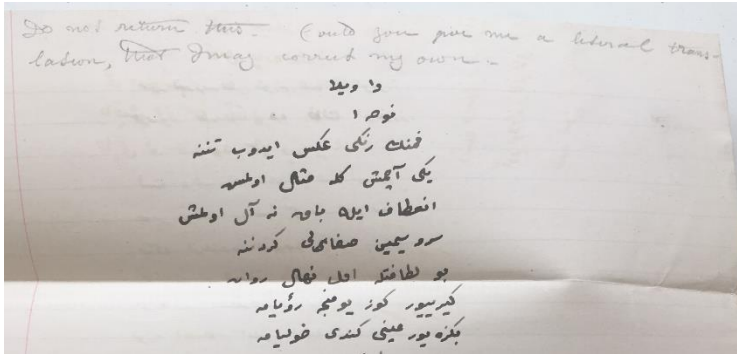 Do not return this. Could you give me a literal trans-
lation, that I may correct my own.
وا ويلا
نوحه ١
فمنك رنكى عكس ايدوب تننه
يكى آچمش كله مثال اولمش
انعطاف ايله باق نه آل اولمش
سرو سيمين صفالى كردننه
بو لطافتله اول نهال روان
كيرييور كوز يومنجه رؤيامه
بكزه يور عينى كندى خوليامه